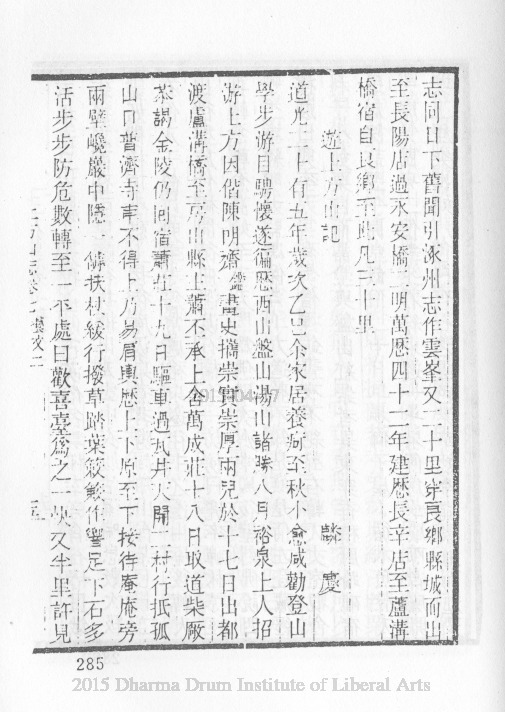 志同日下舊聞引涿州志作雲峯又二十里穿良鄉縣城而出
至長陽店過永安橋二明萬歷四十二年建歷長辛店至蘆溝
橋宿自良鄉至此凡三十里
遊上方山記
麟慶
道光二十有五年歲次乙巳余家居養疴至秋小愈咸勸登山
學步游目騁懷遂徧歷西山盤山湯山諸勝八月裕泉上人招
游上方因偕陳明齋鑑畫史攜崇實崇厚兩兒於十七日出都
渡盧溝橋至房山縣上蕭丞承上舍萬成莊十八日取道柴厰
恭謁金陵仍回宿蕭莊十九日驅車過瓦井天開二村行抵孤
山口普濟寺車不得上乃易肩輿歷上下原至下接待庵庵旁
兩壁巉巖中隱一線扶杖緩行撥草踏葉簌簌作響足下石多
活步步防危數轉至一平處曰歡喜臺爲之一快又半里許見
上方山志卷七 藝文二
285
2015 Dharma Drum Institute of Liberal Arts